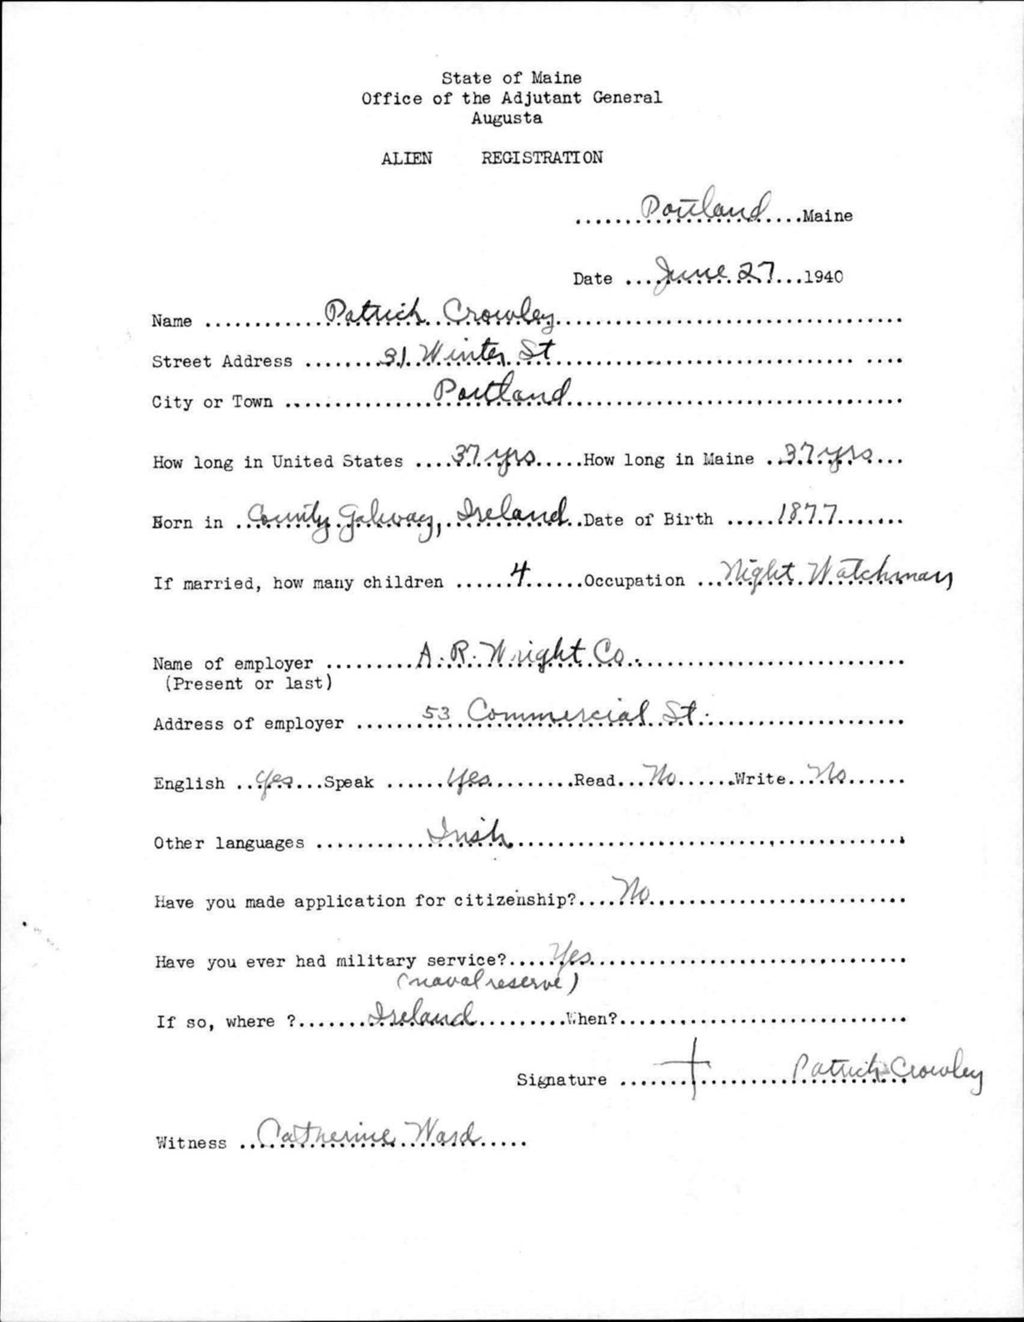 State of Maine
Office of the Adjutant General
Augusta
ALIEN REGISTRATION
.......Portland....Maine
Date ...June 27...1940
Name ............Patrick Crowley....................................
Street Address ........31 Winter St....................................
City or Town ..............Portland..................................
How long in United States ....37 yrs.....How long in Maine ..37 yrs...
Born in ..County Galway, Ireland..Date of Birth .....1877.......
If married, how many children ......4......Occupation ...Night Watchman
Name of employer .........A. R. Wright Co..............................
(Present or last)
Address of employer .......53 Commercial St........................
English ..Yes...Speak ......Yes.........Read...No......Write...No......
Other languages ............Irish.......................................
Have you made application for citizenship?....No..........................
Have you ever had military service?....Yes................................
(naval reserve)
If so, where ?.......Ireland.........When?.............................
Signature ......+..........Patrick Crowley
Witness ..Catherine Ward.....